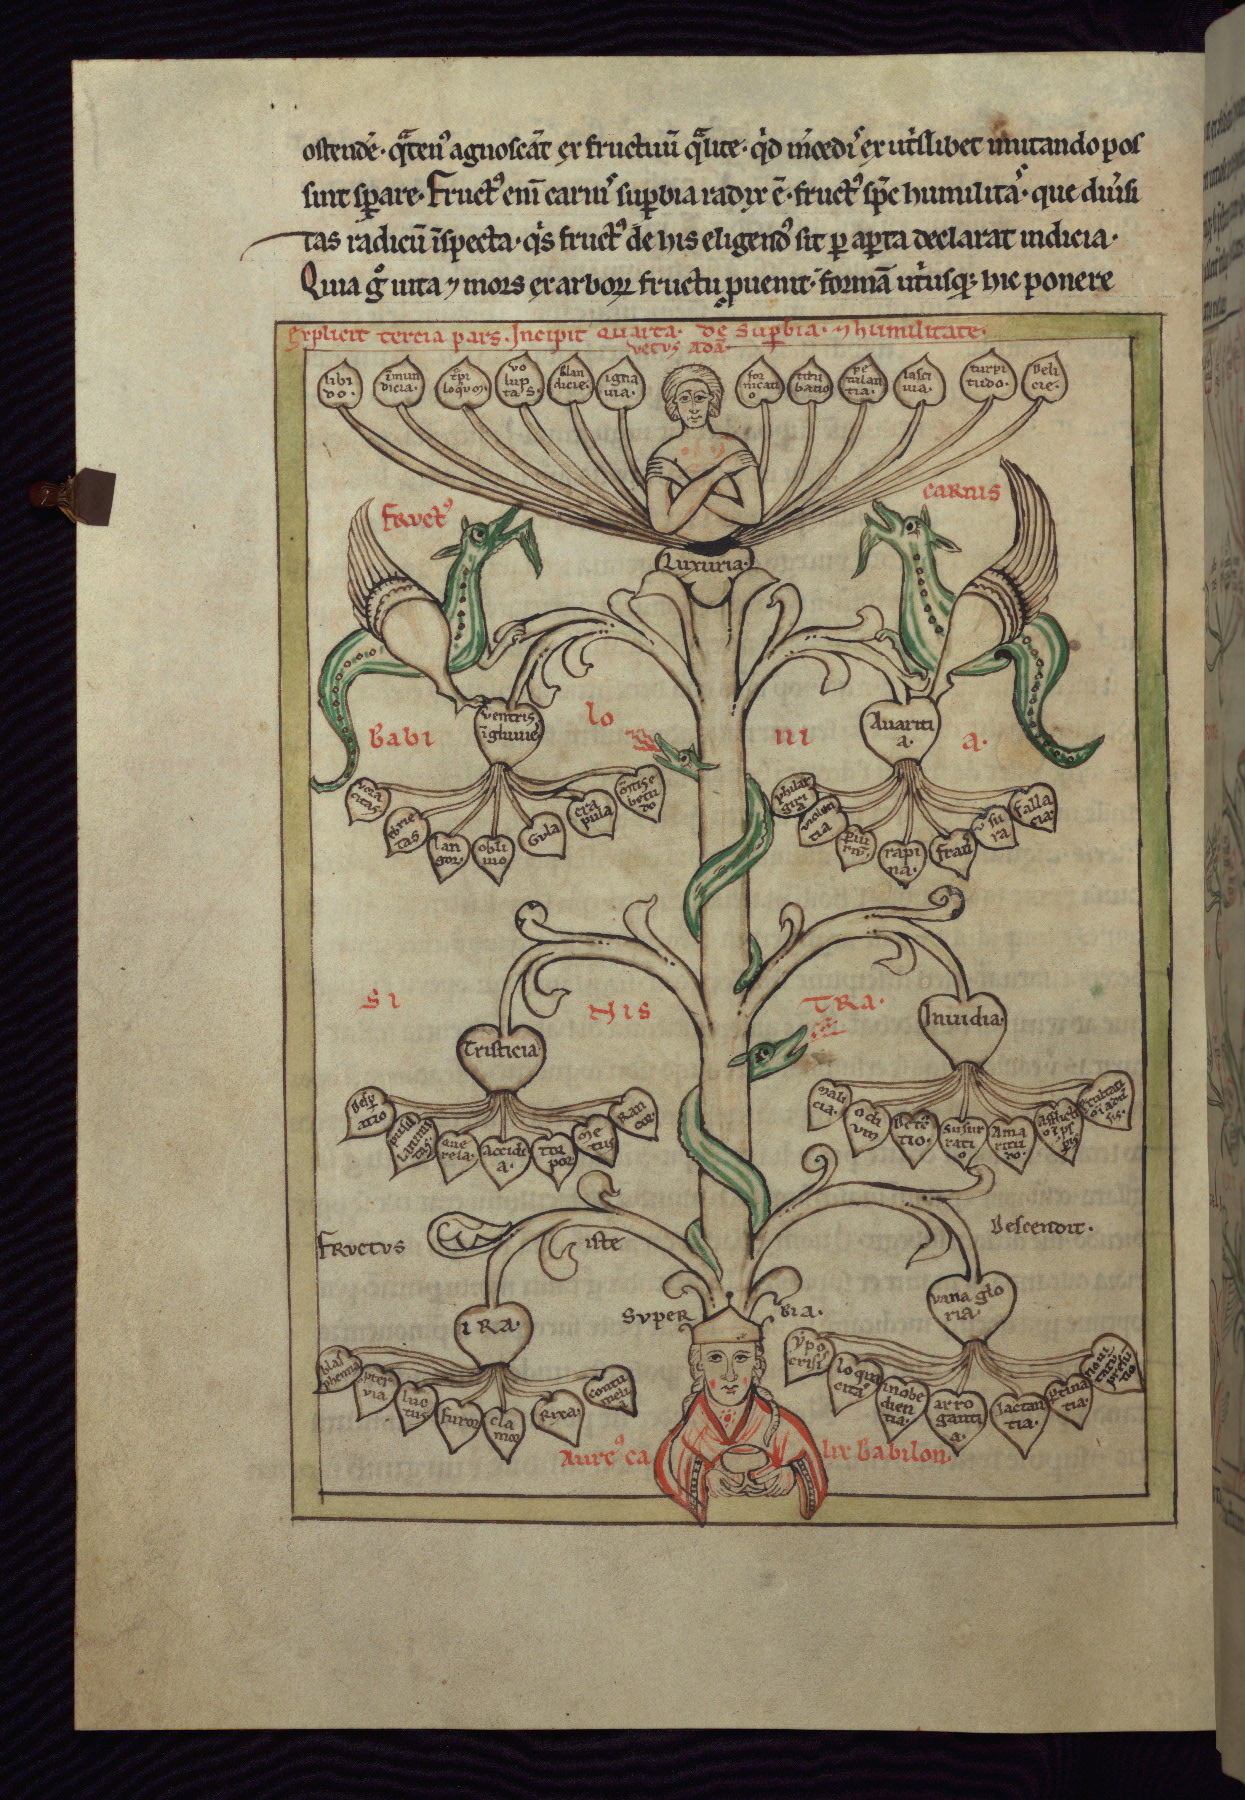 ostendẽ· q̃ten᷒ agnoscãt ex fructuũ q̃lite· qd̾ m̾cedis̾ ex ut̾libet mutando pos
sint sp̱are· Fruct᷒ eni᷉ carnis̾ sup̱bia radix ẽ· fruct᷒ sp̃c humilitas̾· que duisi
tas radicũ ĩspecta· qis fruct᷒ de his eligend᷒ sit p̱ ap̱ta declarat indicia·
Quia g̊ uita ⁊ mors ex arboꝝ fructu ꝓuenit· formã ut̾usq; hic ponere
Explicit tercia pars. Incipit quarta· de Sup̱bia· ⁊ humilitate·
vetus adã·
libi
do·
ĩmun
dicia·
t̾pi
loqm̃·
vo
lup
tas·
blan
dicie·
igna
via·
for
nicati
o
titu
batio
petulan
tia·
lasci
uia·
turpi
tudo·
Deli
cie·
Fruct᷒
carnis
Luxuria·
ventris
ĩgluuie
Avariti
a·
Babi
lo
ni
a·
vora
citas
ebrie
tas
lan
gor·
obli
uio
Gula
cra
pula
hebetu
do
philar
giri
a
violen
tia
p̱iu
riũ·
rapi
na·
frau᷒
vsu
ra
falla
cia·
si
nis
tra·
Tristicia
Inuidia·
Desp̱
atio
pusil
lanimi
tas·
que
rela·
accidi
a·
ti
por
me
tus
Ran
cor·
mali
cia·
odi
vm
Detᷓc
tio·
susur
rati
o
Ama
ritu
do·
Fructus
iste
Descendit·
ira·
vana glo
ria·
Super
bia·
blas
phemia
p̱ter
via·
luc
tus
furor
cla
mor
Rixa·
contu
melia
ypo
crisis
loqua
citas̃
inobe
dien
tia·
arro
ganti
a·
Iactan
tia·
p̱tina
tia·
noui
tatũ
presũ
tio
Aure᷒ ca
lix Babilon·